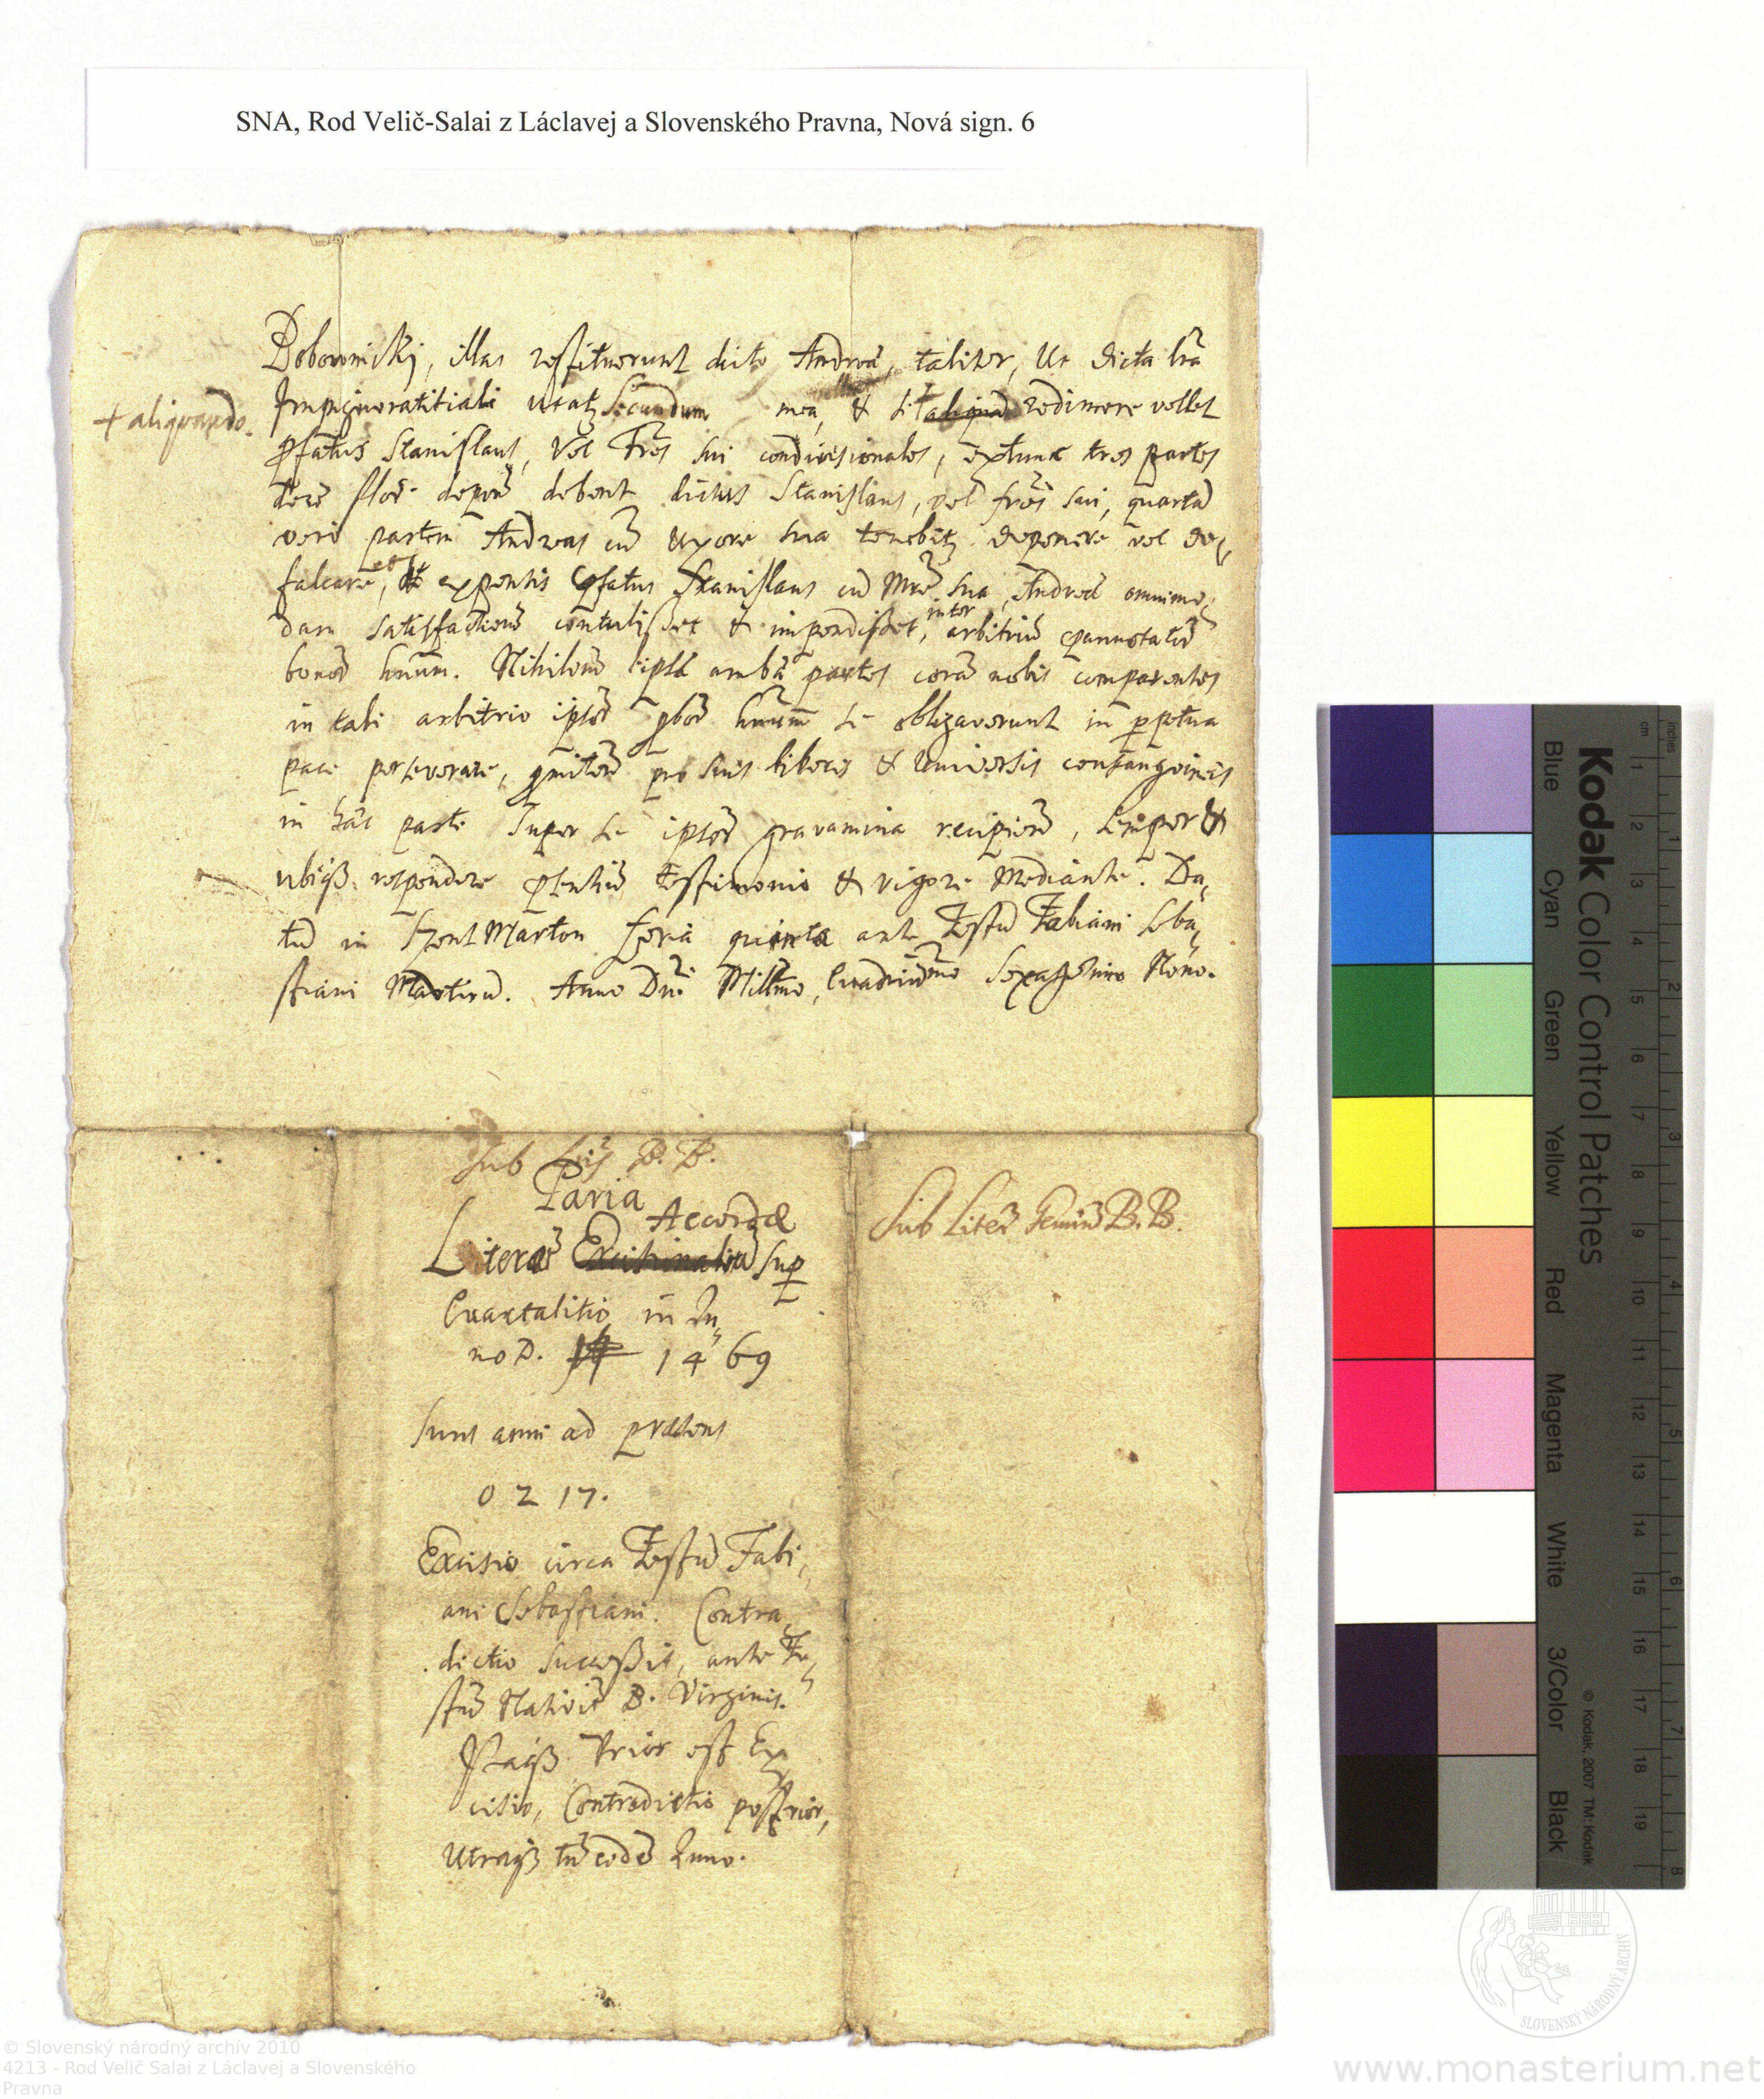 SNA, Rod Velič-Salai z Láclavej a Slovenského Pravna, Nová sign. 6
Doboronickj, illas restituerunt dicto Andreæ, taliter, Ut dicta l̃ra
+ aliquando.
Impignoratitiali utat Secundum mea, & si aliquã redimere vellet
Pfatus Stanislaus, Vel Fr̃es sui condivisionales, extunc tres partes
flor̃ deponẽ debent dictus Stanislaus, vel fr̃es sui, quartã
vero partem Andreas cũ Uxore sua tenebit deponere vel de„
falcare, et expensis Pfatus Stanislaus cũ Mr̃e sua, Andreæ omnimo„
dam satisfactionẽ contulisset & impendisset, inter arbitriũ
bonor̃ hnũm. Nihilom̃ ipsæ ambæ partes corã nobis comparentes
in tali arbitrio ipsor̃ hnũm se obligaverunt in perpetua
pace perseverare, pro suis liberis & Universis consangvineis
in hac parte Super se ipsor̃ gravamina recipien̄, semper &
ubiqꝫ respondere pñtiũ testimonio & vigore Mediante. Da„
tũ in Szent Marton feria quinta ante Festũ Fabiani Seba„
stiani Martirũ. Anno Dñi Millm̃o, Quadrin̄m̃o Sexagesimo Nono.
Sub Lr̃is B. B.
Paria
Accordæ
Literar̃ Sup
Quartalitio in An„
no D. 1469
Sunt anni ad præsens
0 2 17.
Excisio circa Festũ Fabi„
ani Sebastiani. Contra„
dictio successit, ante Fe„
stũ Nativit̃ B. Virginis.
Itaqꝫ Prior est Ex„
cisio, Contradictio posterior,
Utraqꝫ tñ eodẽ Anno.
Sub Liter̃ Gemin̄ B. B.
Kodak Color Control Patches
Blue Cyan Green Yellow Red Magenta White 3/Color Black
© Kodak, 2007 TM: Kodak
cm 1 2 3 4 5 6 7 8 9 10 11 12 13 14 15 16 17 18 19
inches 1 2 3 4 5 6 7 8
SLOVENSKÝ NÁRODNÝ ARCHÍV
© Slovenský národný archív 2010
4213 - Rod Velič Salai z Láclavej a Slovenského
Pravna
www.monasterium.net